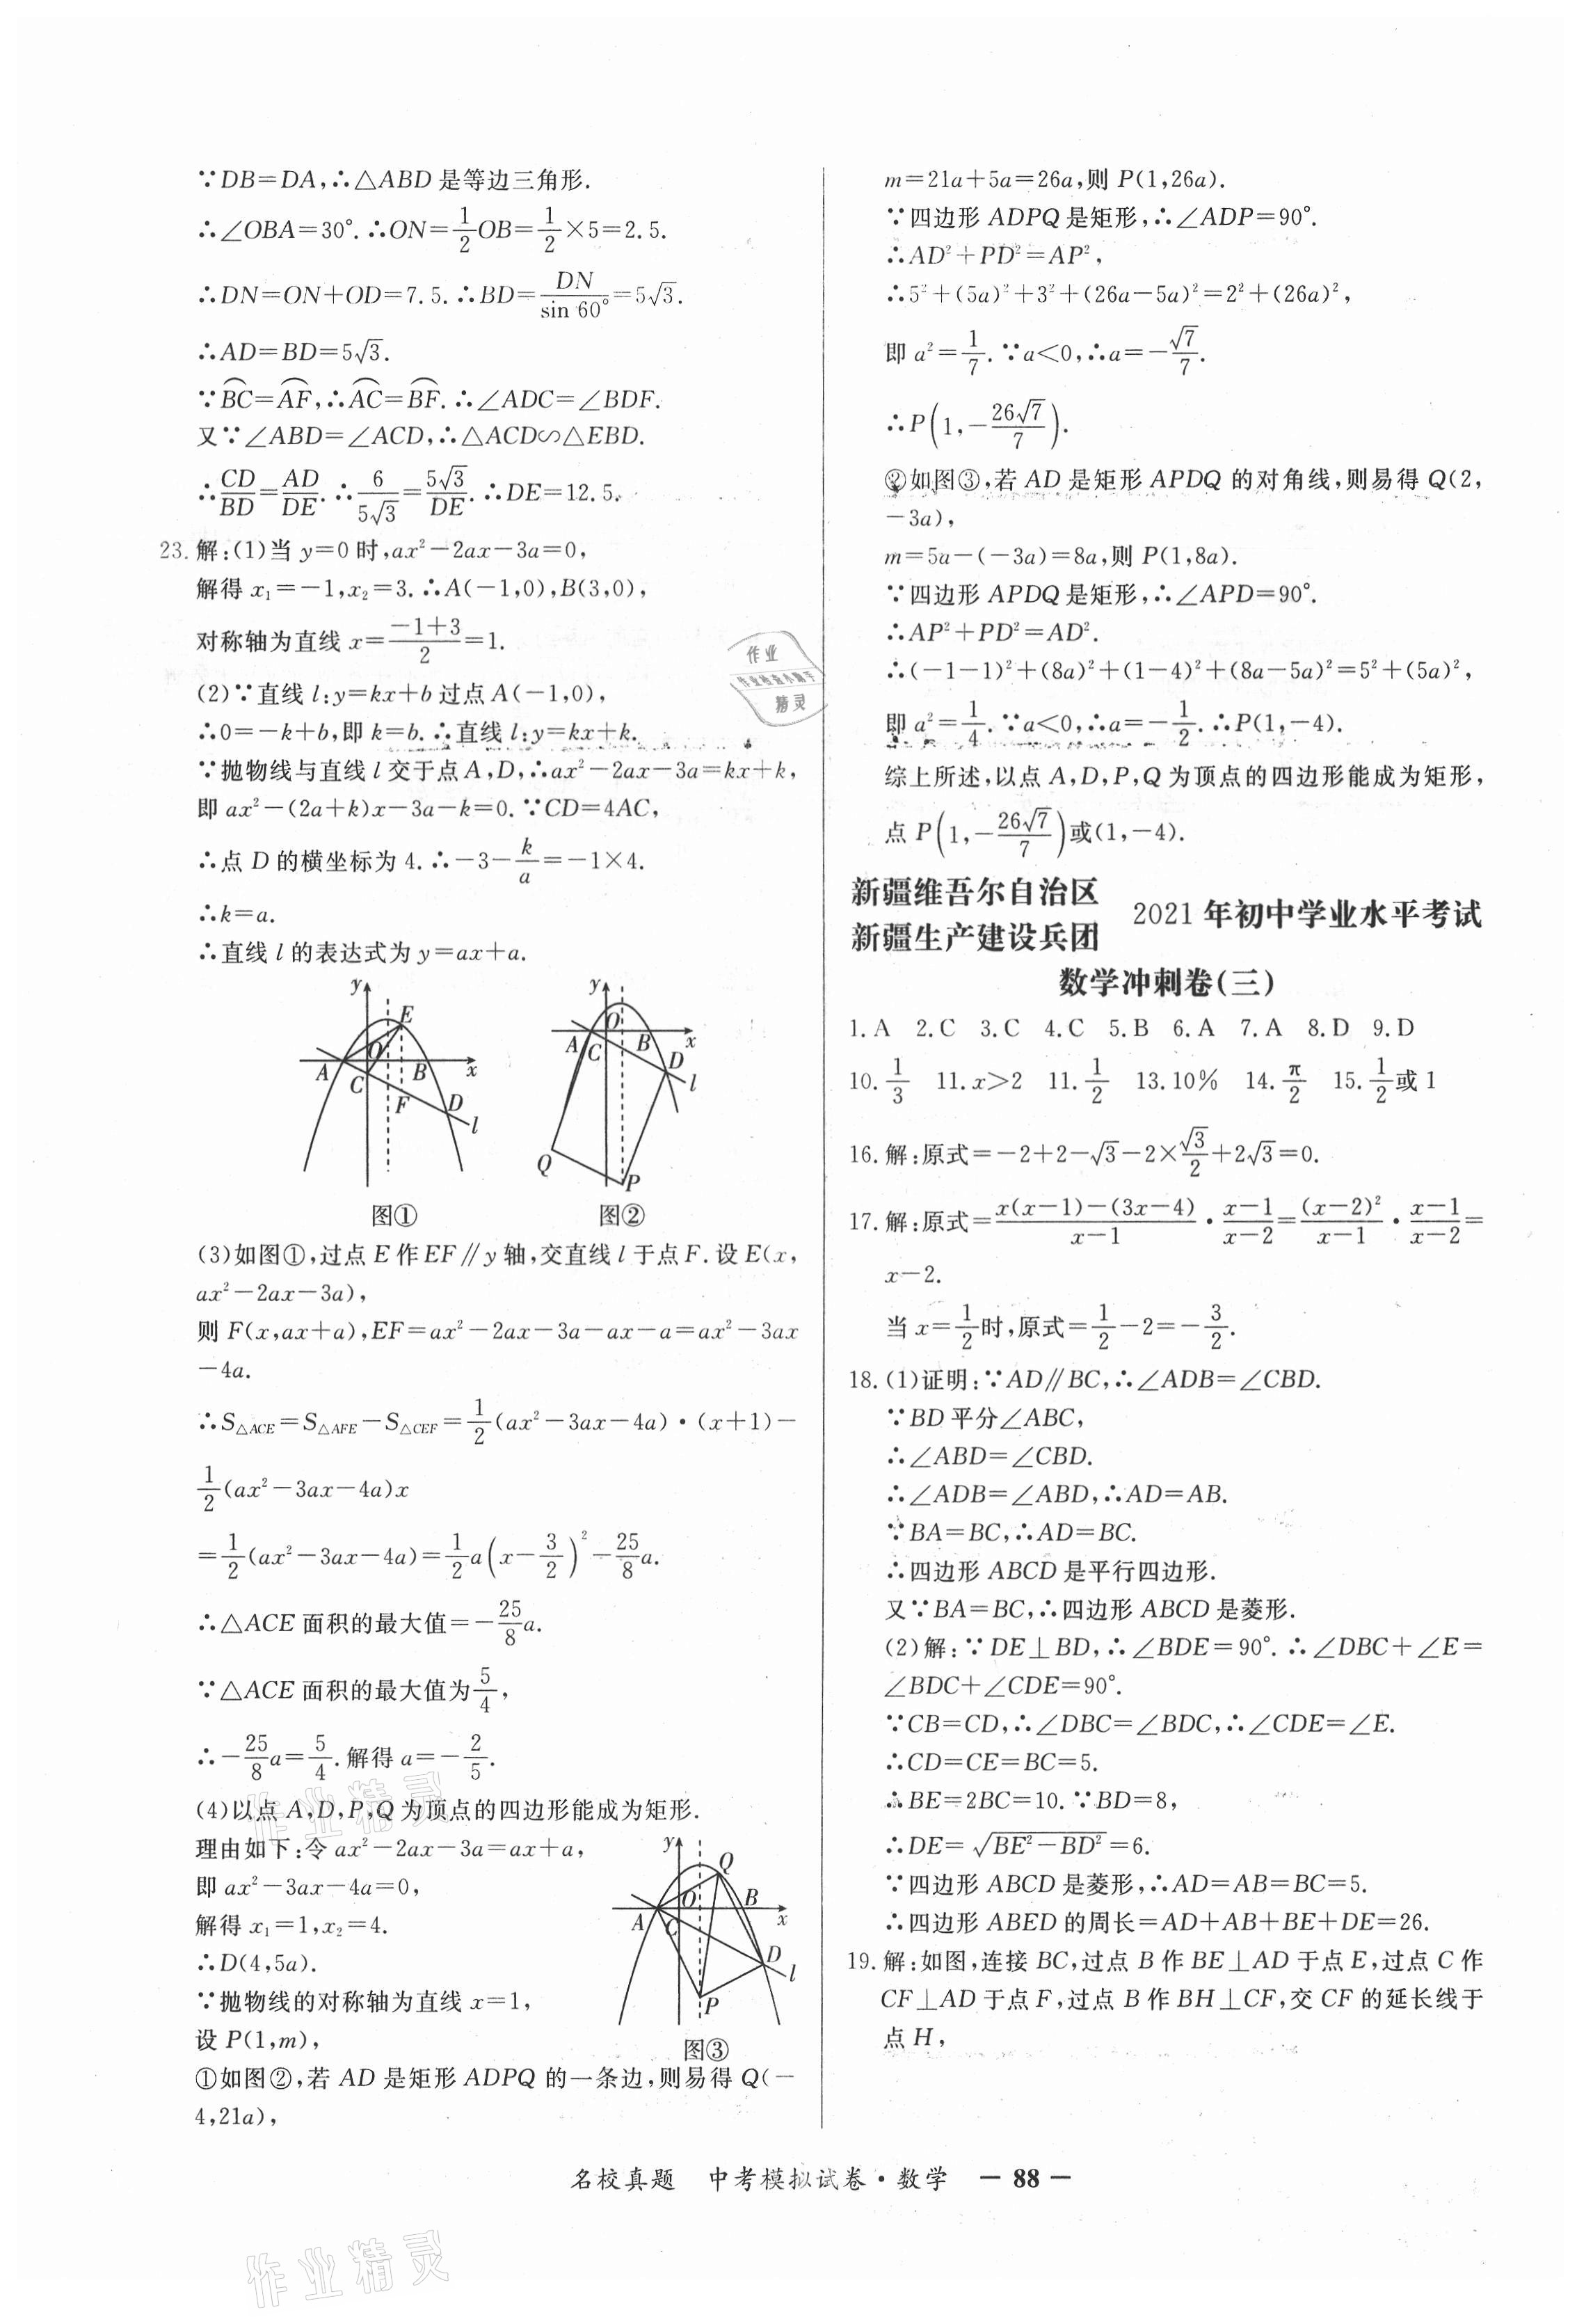 ∵DB=DA,∴△ABD 是等边三角形.
∴∠OBA=30°.∴ON=1/2OB=1/2×5=2.5.
∴DN=ON+OD=7.5.∴BD=DN/sin 60°=5√3.
∴AD=BD=5√3.
∵BC⌒=AF⌒,∴AC⌒=BF⌒.∴∠ADC=∠BDF.
又∵∠ABD=∠ACD,∴△ACD∽△EBD.
∴CD/BD=AD/DE.∴6/5√3=5√3/DE.∴DE=12.5.
23.解:(1)当 y=0 时,ax²-2ax-3a=0,
解得 x₁=-1,x₂=3.∴A(-1,0),B(3,0),
对称轴为直线 x=(-1+3)/2=1.
(2)∵直线 l:y=kx+b 过点 A(-1,0),
∴0=-k+b,即 k=b.∴直线 l:y=kx+k.
∵抛物线与直线 l 交于点 A,D,∴ax²-2ax-3a=kx+k,
即 ax²-(2a+k)x-3a-k=0.∵CD=4AC,
∴点 D 的横坐标为 4.∴-3-k/a=-1×4.
∴k=a.
∴直线 l 的表达式为 y=ax+a.
y E O A B x C F D l
y O A C B x D l Q P
图① 图②
(3)如图①,过点 E 作 EF∥y 轴,交直线 l 于点 F.设 E(x,
ax²-2ax-3a),
则 F(x,ax+a),EF=ax²-2ax-3a-ax-a=ax²-3ax
-4a.
∴S△ACE=S△AFE-S△CEF=1/2(ax²-3ax-4a)·(x+1)-
1/2(ax²-3ax-4a)x
=1/2(ax²-3ax-4a)=1/2a(x-3/2)²-25/8a.
∴△ACE 面积的最大值=-25/8a.
∵△ACE 面积的最大值为5/4,
∴-25/8a=5/4.解得 a=-2/5.
(4)以点 A,D,P,Q 为顶点的四边形能成为矩形.
理由如下:令 ax²-2ax-3a=ax+a,
即 ax²-3ax-4a=0,
解得 x₁=1,x₂=4.
∴D(4,5a).
∵抛物线的对称轴为直线 x=1,
设 P(1,m),
y Q O B A C x D l P
图③
①如图②,若 AD 是矩形 ADPQ 的一条边,则易得 Q(-
4,21a),
m=21a+5a=26a,则 P(1,26a).
∵四边形 ADPQ 是矩形,∴∠ADP=90°.
∴AD²+PD²=AP²,
∴5²+(5a)²+3²+(26a-5a)²=2²+(26a)²,
即 a²=1/7.∵a<0,∴a=-√7/7.
∴P(1,-26√7/7).
②如图③,若 AD 是矩形 APDQ 的对角线,则易得 Q(2,
-3a),
m=5a-(-3a)=8a,则 P(1,8a).
∵四边形 APDQ 是矩形,∴∠APD=90°.
∴AP²+PD²=AD².
∴(-1-1)²+(8a)²+(1-4)²+(8a-5a)²=5²+(5a)²,
即 a²=1/4.∵a<0,∴a=-1/2.∴P(1,-4).
综上所述,以点 A,D,P,Q 为顶点的四边形能成为矩形,
点 P(1,-26√7/7)或(1,-4).
新疆维吾尔自治区
新疆生产建设兵团 2021 年初中学业水平考试
数学冲刺卷(三)
1.A 2.C 3.C 4.C 5.B 6.A 7.A 8.D 9.D
10.1/3 11.x>2 11.1/2 13.10% 14.π/2 15.1/2或 1
16.解:原式=-2+2-√3-2×√3/2+2√3=0.
17.解:原式=(x(x-1)-(3x-4))/(x-1)·(x-1)/(x-2)=(x-2)²/(x-1)·(x-1)/(x-2)=
x-2.
当 x=1/2时,原式=1/2-2=-3/2.
18.(1)证明:∵AD∥BC,∴∠ADB=∠CBD.
∵BD 平分∠ABC,
∴∠ABD=∠CBD.
∴∠ADB=∠ABD,∴AD=AB.
∵BA=BC,∴AD=BC.
∴四边形 ABCD 是平行四边形.
又∵BA=BC,∴四边形 ABCD 是菱形.
(2)解:∵DE⊥BD,∴∠BDE=90°.∴∠DBC+∠E=
∠BDC+∠CDE=90°.
∵CB=CD,∴∠DBC=∠BDC,∴∠CDE=∠E.
∴CD=CE=BC=5.
∴BE=2BC=10.∵BD=8,
∴DE=√(BE²-BD²)=6.
∵四边形 ABCD 是菱形,∴AD=AB=BC=5.
∴四边形 ABED 的周长=AD+AB+BE+DE=26.
19.解:如图,连接 BC,过点 B 作 BE⊥AD 于点 E,过点 C 作
CF⊥AD 于点 F,过点 B 作 BH⊥CF,交 CF 的延长线于
点 H,
名校真题 中考模拟试卷·数学 — 88 —
作业
精灵
作业精灵
作业精灵